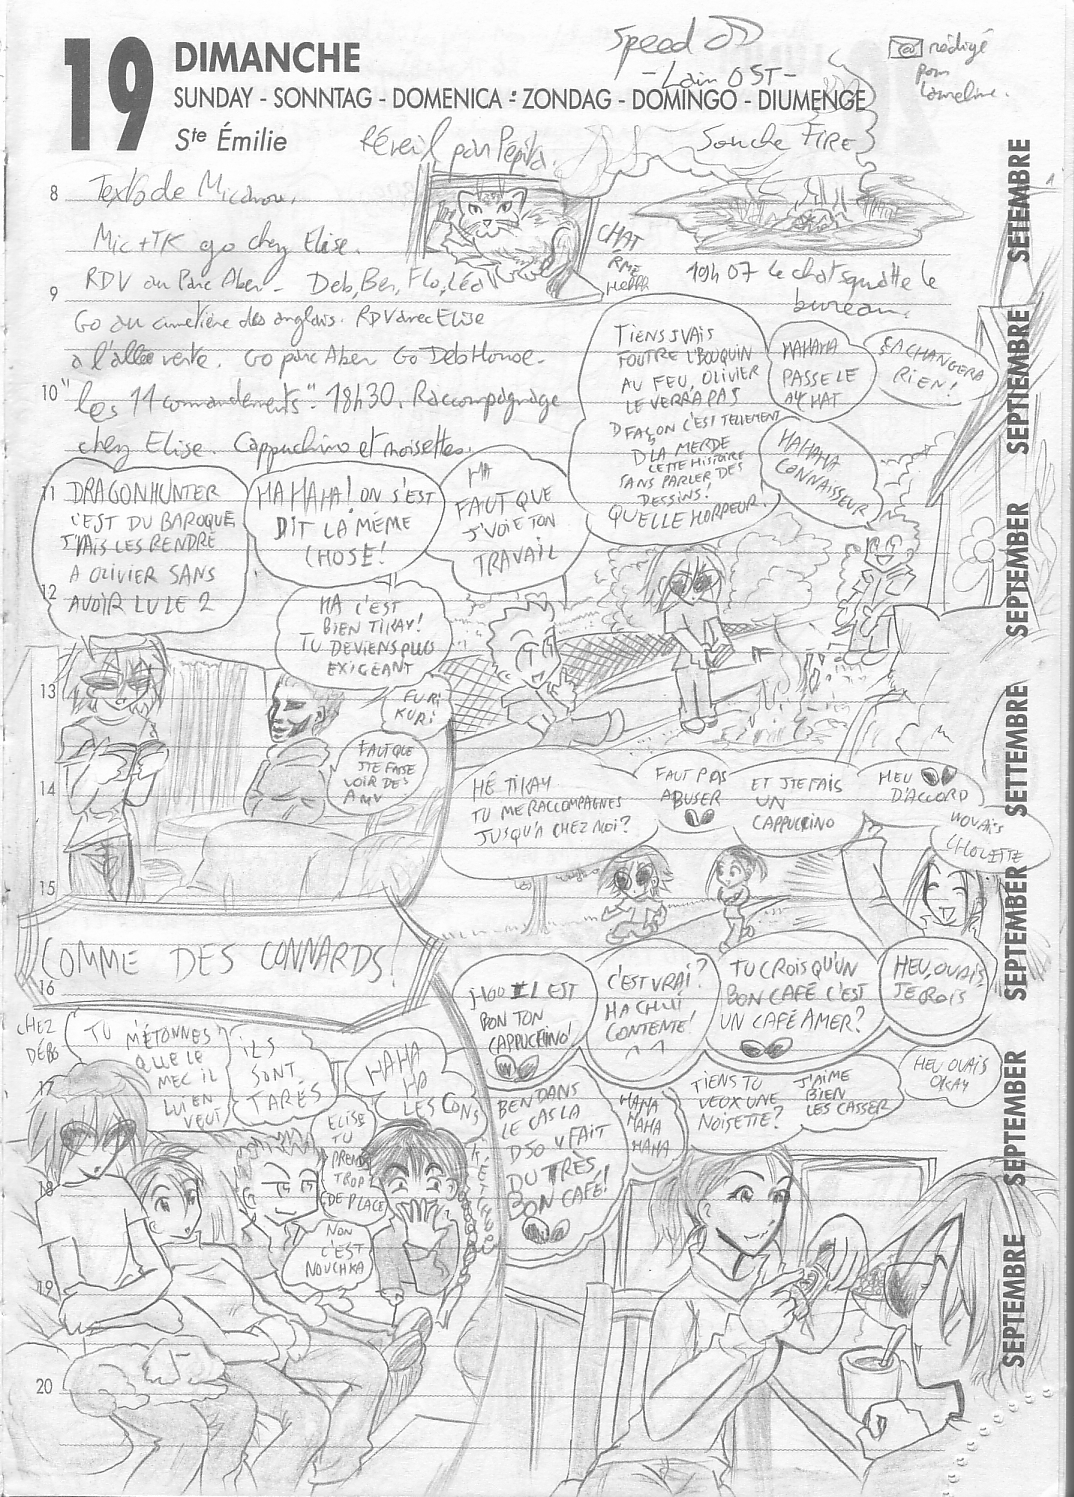 19
DIMANCHE
SUNDAY - SONNTAG - DOMENICA - ZONDAG - DOMINGO - DIUMENGE
Ste Émilie
Speed
- Lain OST -
@ rédigé
pour
Réveil par Pepita.
Souche FIRE
8
Texto de
Mic + TK go chez Elise.
CHAT
19h07 Le chat squatte le
bureau.
9
RDV au Parc Aber - Deb, Ben, Flo, Léo
Go au cimetière des anglais. RDV avec Elise
à l'allée verte. Go parc Aber Go Deb House.
10
"les 11 commandements". 18h30. Raccompagnage
chez Elise. Cappuchino et noisettes.
TIENS J'VAIS
FOUTRE L'BOUQUIN
AU FEU, OLIVIER
LE VERRA PAS
D'FAÇON C'EST TELLEMENT
D'LA MERDE
CETTE HISTOIRE
SANS PARLER DES
DESSINS!
QUELLE HORREUR.
HAHAHA
PASSE LE
AU CHAT
ÇA CHANGERA
RIEN!
HAHAHA
CONNAISSEUR
11
DRAGONHUNTER
C'EST DU BAROQUE
J'VAIS LES RENDRE
A OLIVIER SANS
AVOIR LU LE 2
HAHAHA! ON S'EST
DIT LA MÊME
CHOSE!
HA
FAUT QUE
J'VOIE TON
TRAVAIL
12
HA C'EST
BIEN TIKAY!
TU DEVIENS PLUS
EXIGEANT
13
FURI
KURI
FAUT QUE
J'TE FASSE
VOIR DES
AMV
14
HÉ TIKAY
TU ME RACCOMPAGNES
JUSQU'A CHEZ MOI?
FAUT PAS
ABUSER
ET J'TE FAIS
UN
CAPPUCCINO
HEU
D'ACCORD
HOUAIS
CHOUETTE
15
COMME DES CONNARDS!
16
IL EST
BON TON
CAPPUCHINO!
C'EST VRAI?
HA CHUI
CONTENTE!
^^
TU CROIS QU'UN
BON CAFÉ C'EST
UN CAFÉ AMER?
HEU, OUAIS
JE CROIS
CHEZ
DEBS
TU M'ÉTONNES
QUE LE
MEC IL
LUI EN
VEUT!
ILS
SONT
TARÉS
HAHA
HA
LES CONS
17
BEN DANS
LE CAS LA
DSO V FAIT
DU TRÈS
BON CAFÉ!
HAHA
HAHA
HAHA
TIENS TU
VEUX UNE
NOISETTE?
J'AIME
BIEN
LES CASSER
HEU OUAIS
OKAY
ELISE
TU
PRENDS
TROP
DE PLACE
18
NON
C'EST
NOUCHKA
19
20
SETEMBRE
SEPTIEMBRE
SEPTEMBER
SETTEMBRE
SEPTEMBER
SEPTEMBER
SEPTEMBRE